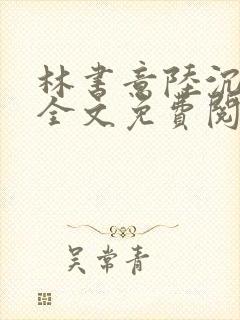 林书意陸沉
全文免費閱
吴常青